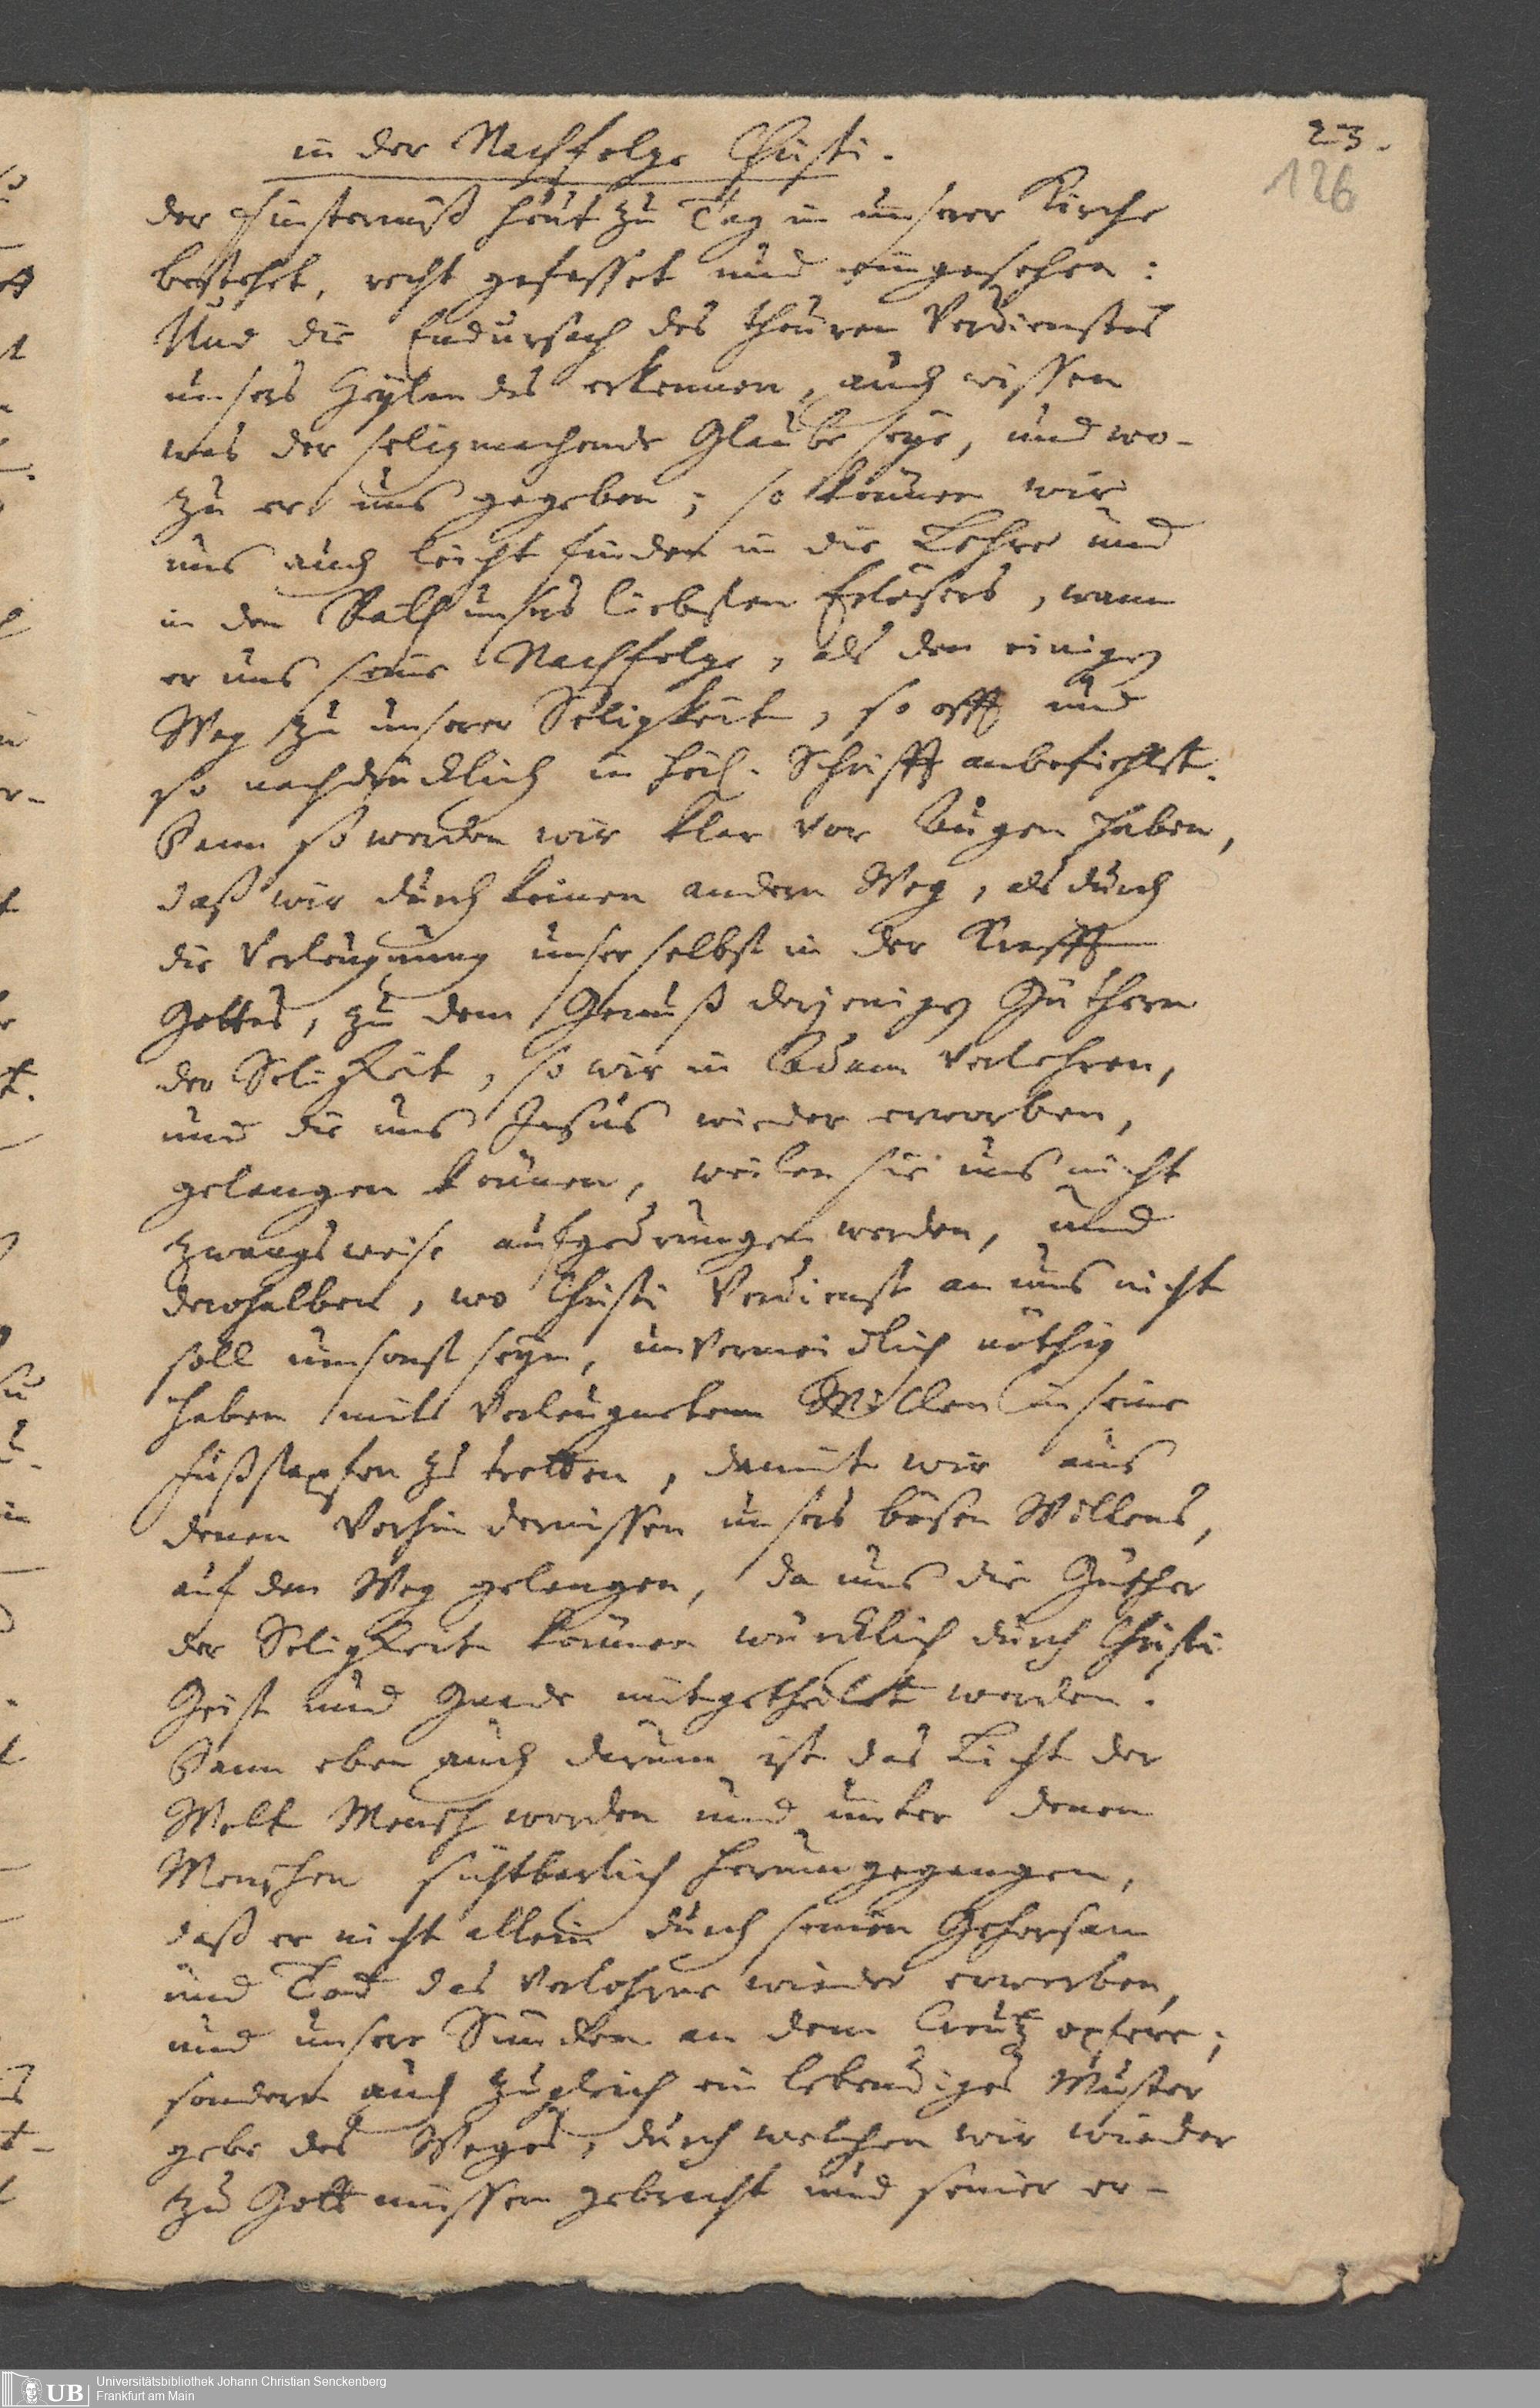 in der Nachfolge Christi.
23.
126
der Finsternuß heut zu Tag in unserer Kirche
bestehet, recht gefasset und eingesehen:
Und die Endursach des theuren Verdienstes
unsers Heylandes erkennen, auch wissen
was der seligmachende Glaube seye, und wo-
zu er uns gegeben; so können wir
uns auch leicht finden in die Lehre und
in den Rath unsers liebsten Erlösers, wann
er uns seine Nachfolge, als den einigen
Weg zu unserer Seligkeit, so offt und
so nachdrücklich in heil. Schrifft anbefiehlet.
Dann so werden wir klar vor Augen haben,
daß wir durch keinen andern Weg, als durch
die Verleugnung unser selbst in der Krafft
Gottes, zu dem Genuß derjenigen Güthern
der Seligkeit, so wir in Adam verlohren,
und die uns Jesus wieder erworben,
gelangen können, weilen sie uns nicht
zwangsweise aufgedrungen werden, und
derohalben, wo Christi Verdienst an uns nicht
soll umsonst seyn, unvermeidlich nöthig
haben mit verleugnetem Willen in seine
Fußstapfen zu tretten, damit wir aus
denen Verhindernissen unsers bösen Willens,
auf den Weg gelangen, da uns die Güther
der Seligkeit können würcklich durch Christi
Geist und Gnade mitgetheilet werden.
Dann eben auch darum ist das Licht der
Welt Mensch worden und unter denen
Menschen sichtbarlich herumgegangen,
daß er nicht allein durch seinen Gehorsam
und Tod das verlohrne wieder erwerben,
und unsere Sünden an dem Creutz opfere;
sondern auch zugleich ein lebendiges Muster
gebe des Weges, durch welchen wir wieder
zu Gott müssen gebracht und seiner er-
UB
Universitätsbibliothek Johann Christian Senckenberg
Frankfurt am Main